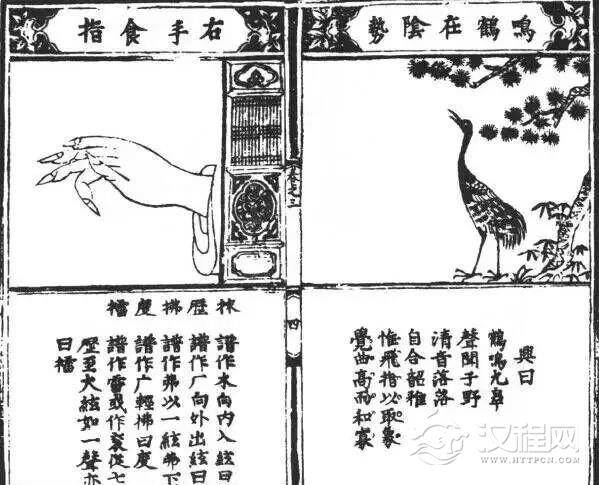 鳴鶴在陰勢
興曰
鶴鳴九皐
聲聞于野
清音落落
自合韶雅
惟飛指以取象
覺曲高而和寡
四
右手食指
歷 拂 度 擂
譜作木向内入絃曰
譜作厂向外出絃曰
譜作弗以一絃弗下
譜作广輕拂曰度
譜作雷或作 從七
歷至大絃如一聲亦
曰擂
汉程网
WWW.HTTPCN.COM